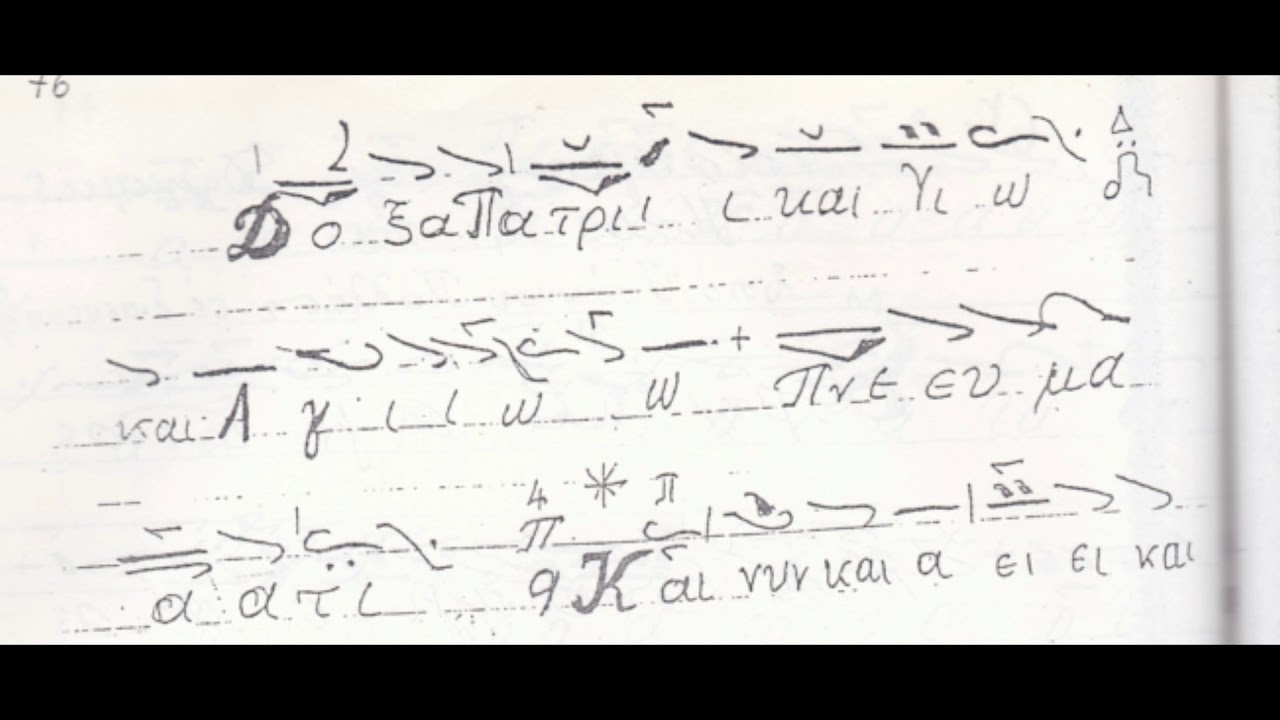 76
Δο ξα Πα τρι ι ι και Υι ω
και Α γ ι ι ω ω Πνε ευ μα
α α τι Και νυν και α ει ει και